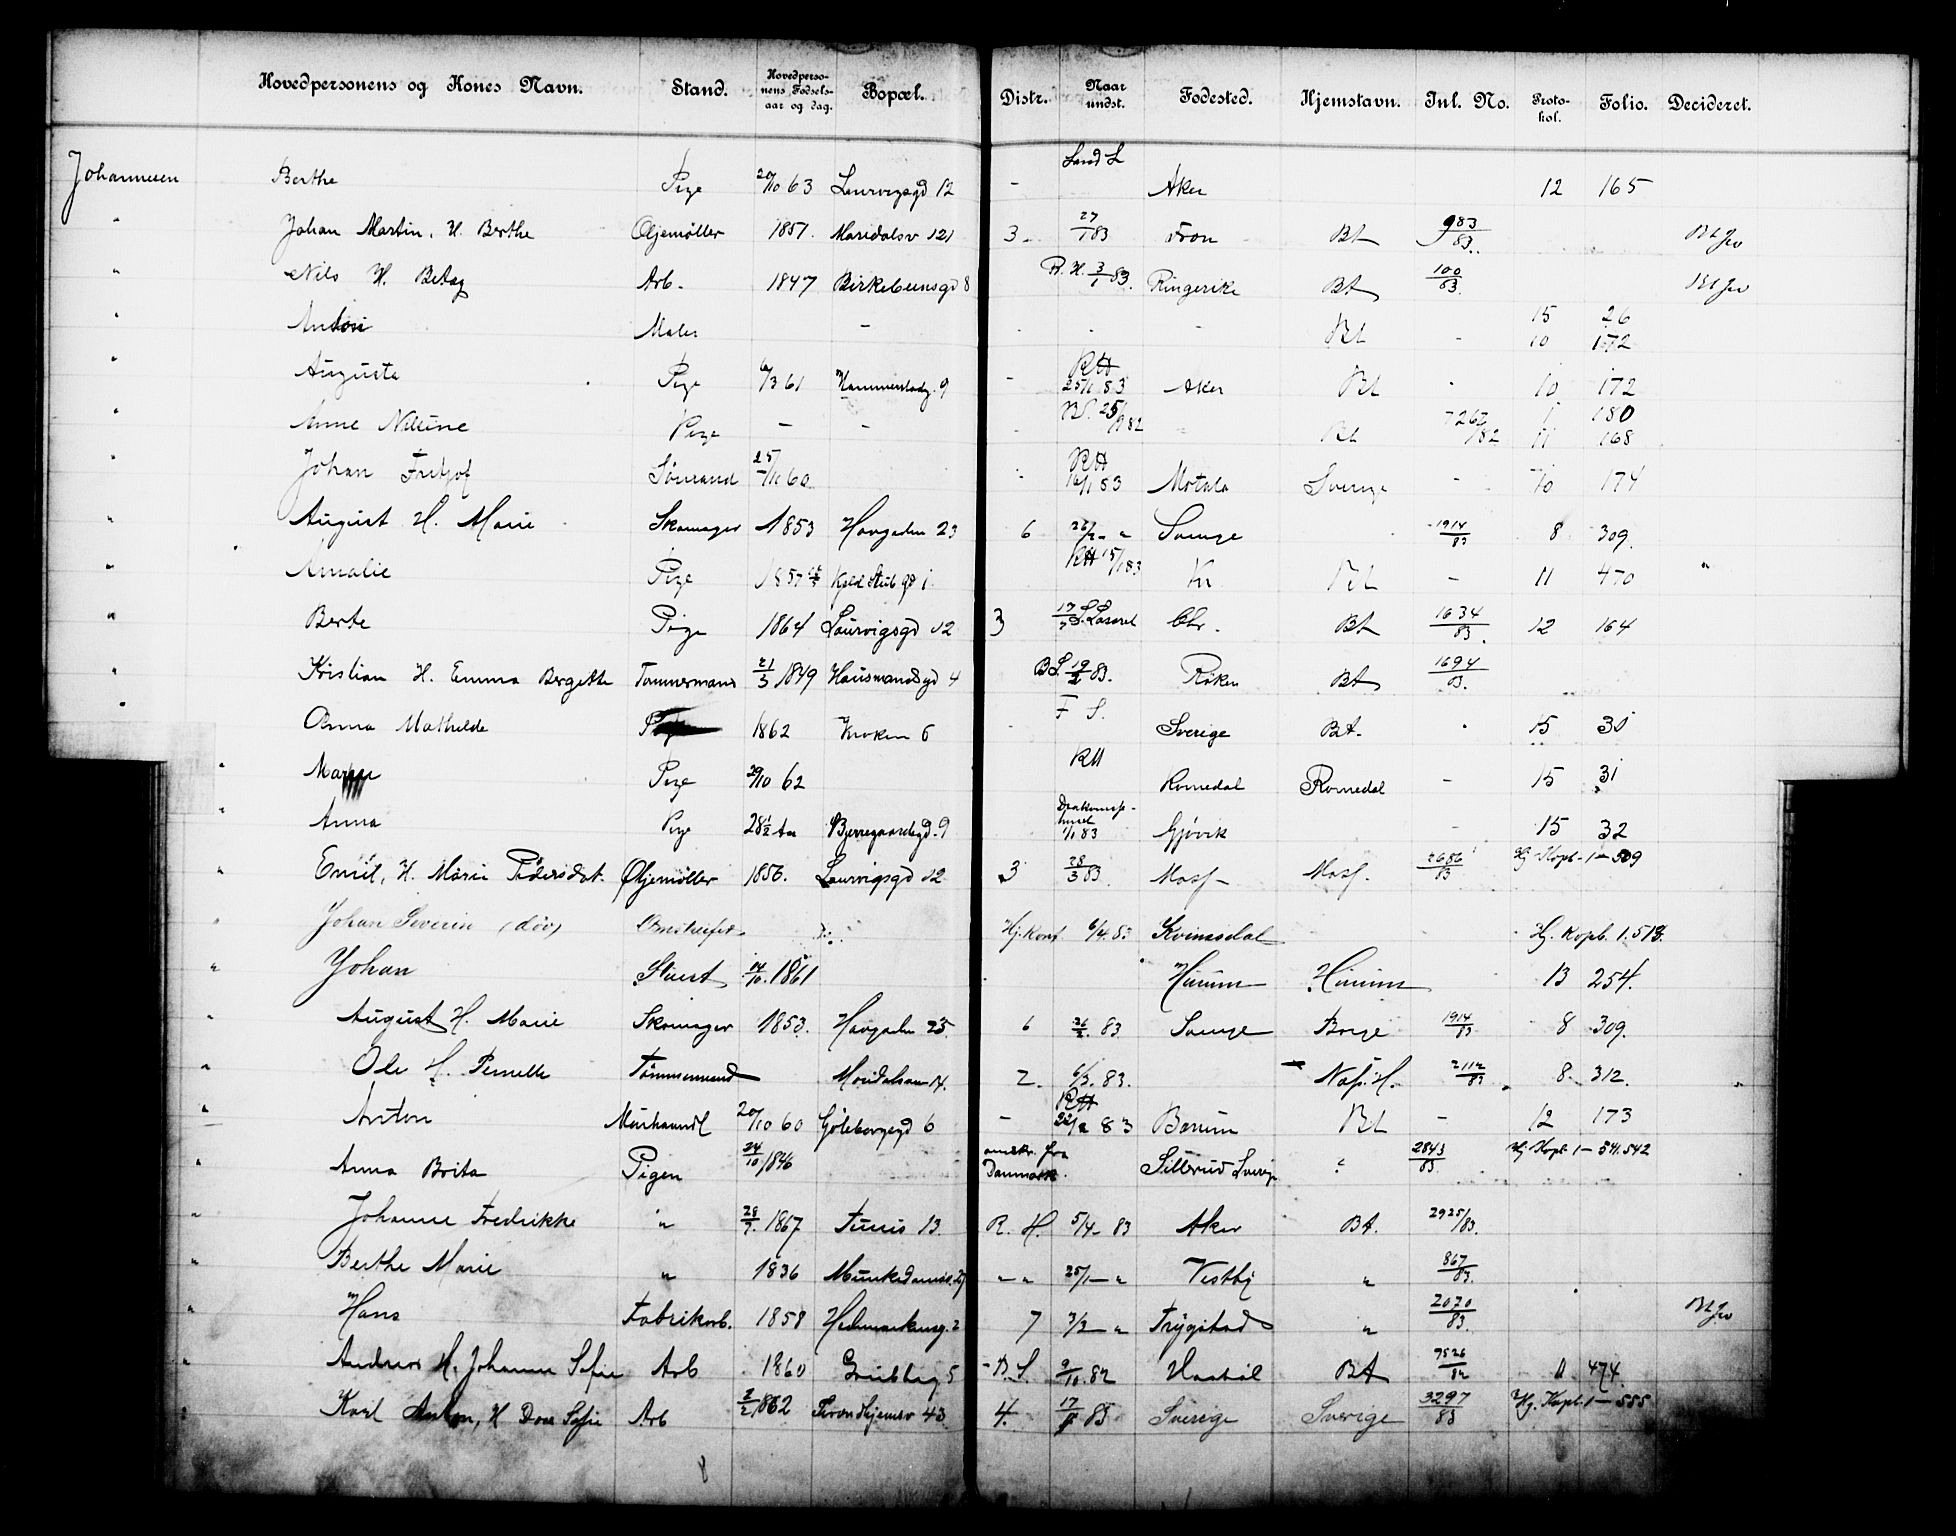 Hovedpersonens og Kones Navn. Stand. Hovedpersonens Fødselsaar og dag. Bopæl. Distr. Naar undst. Fødested. Hjemstavn. Inl. No. Protokol. Folio. Decideret.
Johannesen Berthe Pige 20/10 63 Laurvigsgd 12 - Land L Aker 12 165
" Johan Martin, H. Berthe Oljemøller 1851. Maridalsv 121 3 27/1 83 Fron Bt 983/83 Bt Jrv
" Nils H. Betag Arb. 1847 Birkebeinsgd 8 R.H. 3/1 83. Ringerike Bt 100/83 Bt Jrv
" Anton Maler - Bt - 15 26 10 172
" Auguste Pige 6/3 61 Hammerstadg. 9 - RH 25/1 83 Aker Bt 10 172
" Anne Niline Pige - - 25/9 82 Bt 7262/82 1 180 11 168
" Johan Fritjof Sømand 25/11 60 RH 16/1 83 Motala Sverige - 10 174
" August H. Marie Skomager 1853 Havgaden 23 6 26/2 " Sverige 1914/83 8 309.
Amalie Pige 1857 i RH 15/1 83 Kr Bt - 11 470 "
" Berte Pige 1864 Laurvigsgd 12 3 17/2 Chr. Bt 1634/83. 12 164
" Kristian H. Emma Bergette Tømmermand 21/3 1849 Hausmandsgd 4 B.S. 19/2 83. Røken Bt 1694/83.
" Anna Mathilde 1862 Kroken 6 F S. Sverige Bt. 15 31
" Pige 29/10 62 RH Romedal Romedal - 15 31
" Anna Pige 28 1/2 Aar Bjerregaardsgd. 9 1/1 83 Gjøvik - 15 32
" Emil, H. Marie Pedersdat. Oljemøller 1856. Laurvigsgd 12 3 28/3 83 Moss Moss. 2686/83 Hj. Kopb. 1 - 509
" Johan Severin (døv) Hj. Kont 6/4 83 Kvinesdal Hj. Kopb. 1. 513.
" Johan Stuert 14/10. 1861 Hurum Hurum 13 254.
" August H. Marie Skomager 1853. Havgaden 23. 6 26/2. 83 Sverige Borge 1914/83 8 309.
" Ole H. Pernelle Tømmermand Maridalsvn 14. 2. 6/3. 83. 2112/83 8. 312.
" Anton Murhaandl 20/10 60 Göteborgsgd 6 - RH 22/2 83 Bærum Bt - 12 173
" Anna Brita Pigen 24/10 1846 fra Danmark. Sillerud Sverige " 2843/83. Hj. Kopb. 1 - 541.542
" Johanne Fredrikke " 28/7. 1867 Tunis 13. R. H. 5/4 83 Aker Bt. 2925/83.
" Berthe Marie " 1836 Munkedamsv. 27 - " 25/1 - " Vestby " 867/83.
" Hans Fabrikarb. 1858 7 3/3 - " Trygstad " 2020/83. Bt Jrv
" Andreas H. Johanne Sofie Arb 1860 5 - B. S. 9/10. 82 Bt 9526/82 11 474
" Karl Anton, H Dore Sofie Arb 2/2 1862 Trondhjemsv 43 4. 17/ 83 Sverige Sverige 3297/83 Hj. Kopb. 1 - 555
8